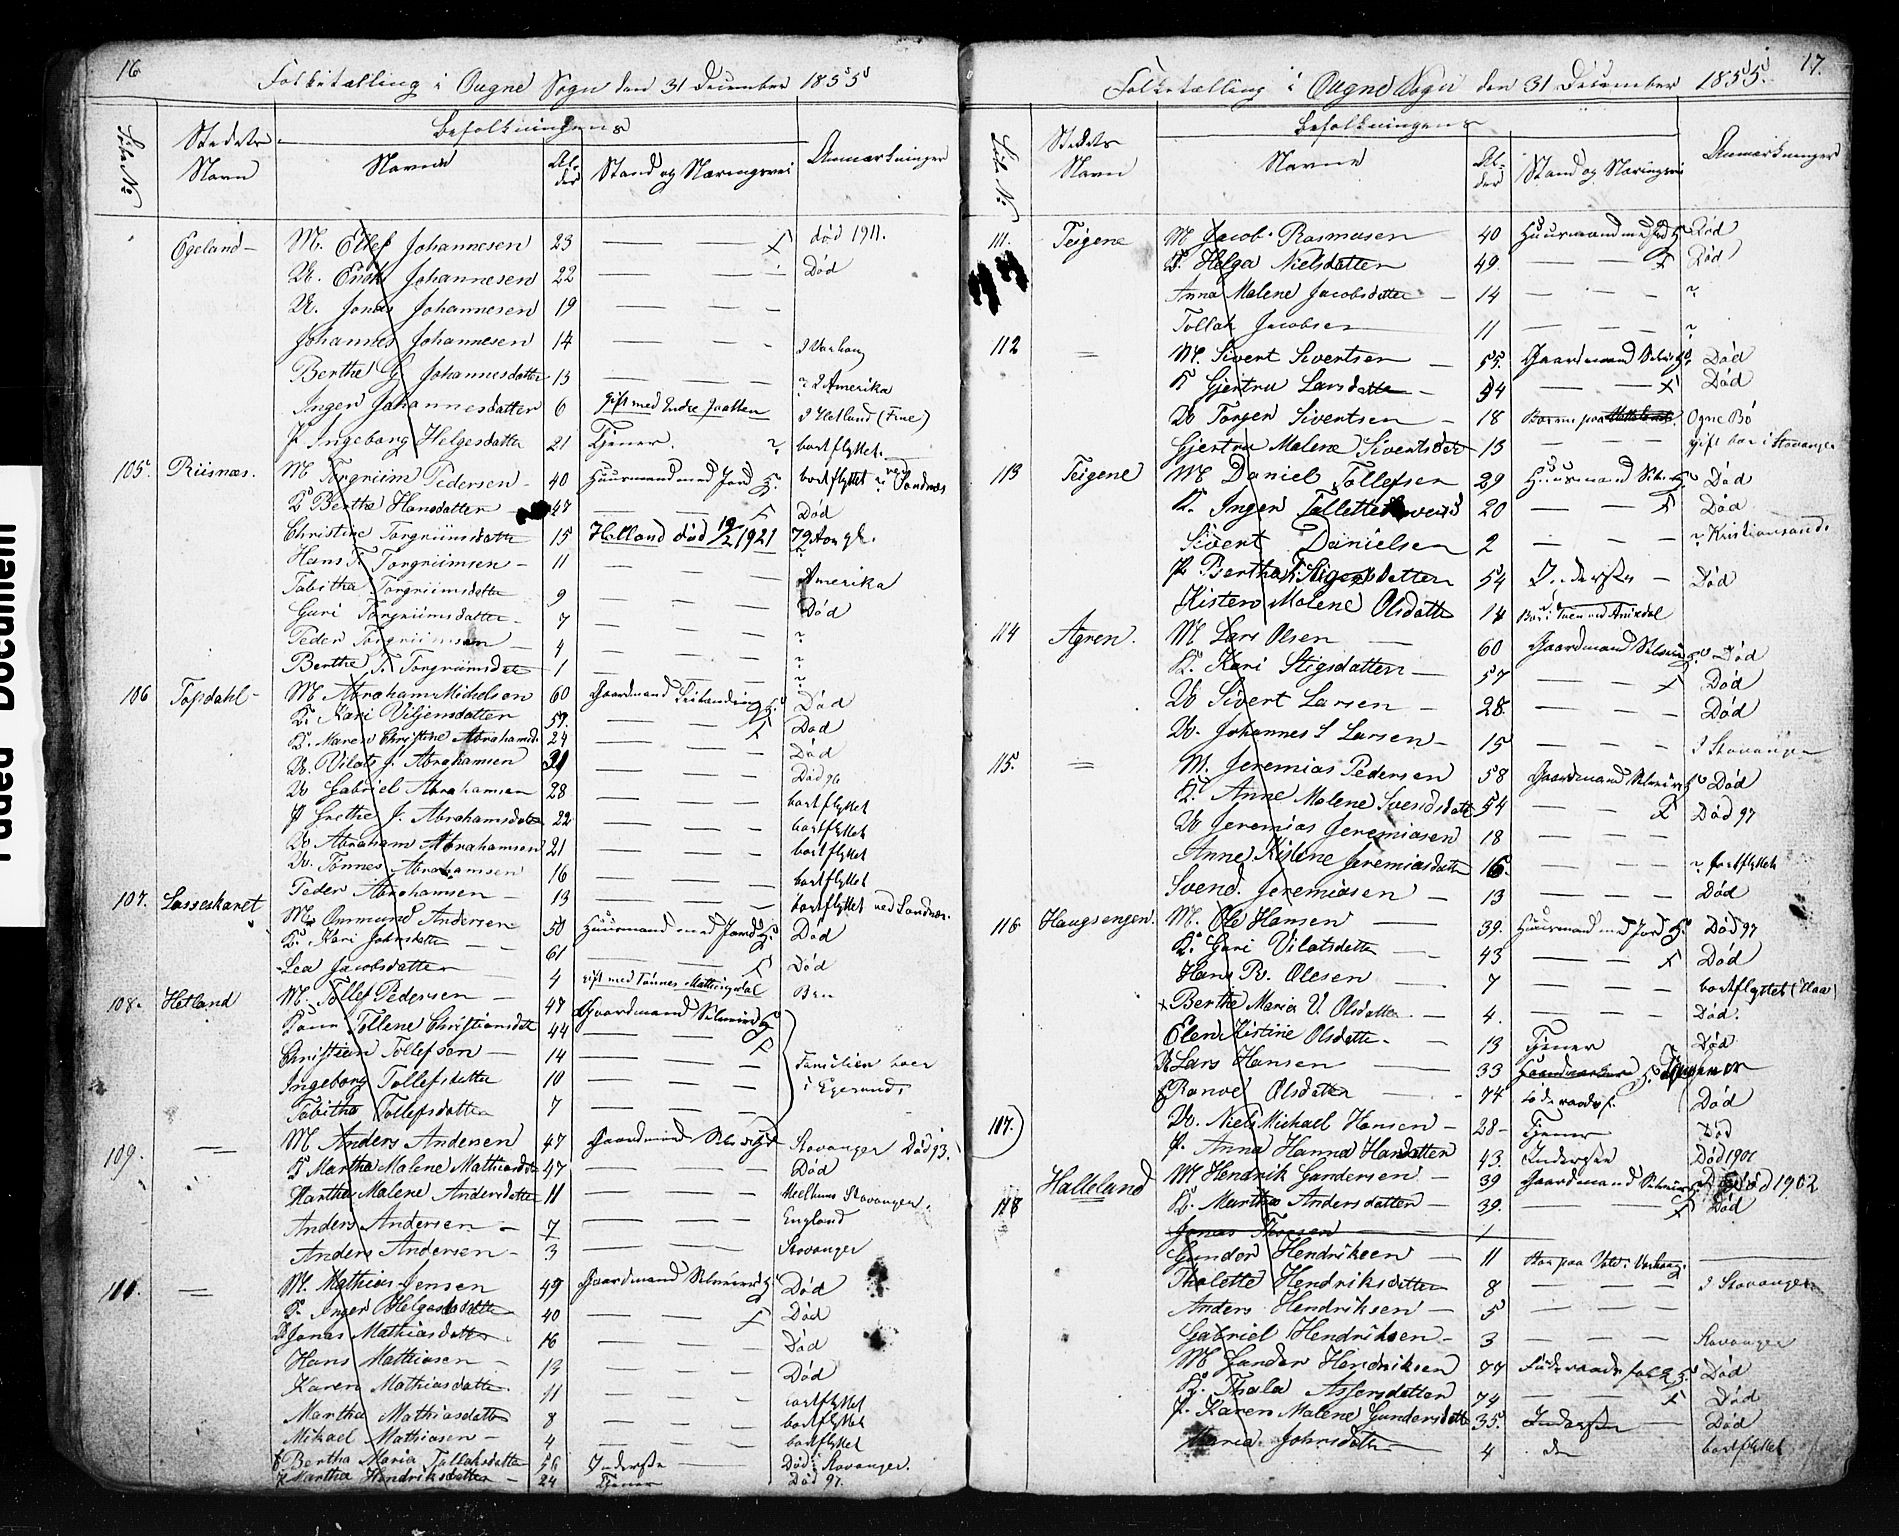 16
Folketælling i Ougne Sogn den 31 December 1855
Løbe No
Stedets Navn
Befolkningens
Navne
Alder
Stand og Næringsvei
Anmærkninger
Egeland - M. Ellef Johannesen 23 død 1911.
U. Enok Johannesen 22 Død
U. Jonas Johannesen 19
Johannes Johannesen 14 I Varhaug
Berthe G. Johannesdatter 13 ? I Amerika
Inger Johannesdatter 6 gift med Endre Jaatten I Hetland (Fine)
P Ingeborg Helgesdatter 21 Tjener. ? bortflyttet.
105. Riisnæs. M. Torgriim Pedersen - 40 Huusmand med Jord bortflyttet ved Sandnæs
K Berthe Hansdatter 47 Død
Christine Torgriimsdatte 15 Helland død 19/2 1921
Hans T. Torgriimsen - 11
Tabitha Torgriimsdatte 9 Amerika
Guri Torgriimsdatter - 7 Død
Peder Torgriimsen - 4 ?
Berthe T. Torgriimsdat 1 ?
106 Topdahl - M. Abraham Mickelsen 60 Gaardmand Død
K. Kari Viljemsdatter 59. Død
K. Maren Christine Abrahamsd. 24 Død
U. Vilats J. Abrahamsen 31 Død 96
U Gabriel Abrahamsen 28 bortflyttet
P Grethe J. Abrahamsdatte 22 bortflyttet
U Abraham Abrahamsen 21 bortflyttet
U. Tønnes Abrahamsen 16 bortflyttet
Peder Abrahamsen - 13 bortflyttet ved Sandnæs.
107. Lasseskaret M. Ommund Andersen 50 Huusmand med Jord Død
K. Kari Johnsdatte 61 Død
Lea Jacobsdatter 4 gift med Tønnes Mattingsdal
108. Hetland M. Tollef Pedersen 47 Gaardmand Selveier
Tollene Christiansdat 44
Christian Tollefsen - 14 Familien boer
Ingeborg Tollefsdatte 10 i Egersund.
Tabitha Tollefsdatter 7
109. M Anders Andersen 47 Gaardmand Selveier Stavanger Død 93.
K Martha Malene Mathiasdat 47 Død
Martha Malene Andersdatter 11 Stavanger.
Anders Andersen - 7 England
Anders Andersen - 3 Stavanger
110. M. Mathias Jensen 49 Gaardmand Selveier Død
K. Inger Helgesdatte 40 Død
Jonas Mathiasdatte 16 Død
Hans Mathiasen - 13 Død
Karen Mathiasdatte 11 bortflyttet
Martha Mathiasdatte 8 bortflyttet
Mikael Mathiasen - 4 bortflyttet
Bertha Maria Tollaksdatte 46 Inderste Død i Stavanger.
P Martha Hendriksdatter - 24 Tjener Død 97.
17.
Folketælling i Ougne Sogn den 31 December 1855.
Løbe No
Stedets Navn
Befolkningens
Navne
Alder
Stand og Næringsvei
Anmærkninger
111. Teigene M Jacob Rasmusen 40 Huusmand med Jord Død
K. Helga Nielsdatter 49. Død
Anna Malene Jacobsdatter - 14 ?
Tollak Jacobsen 11 ?
112 = M. Sivert Sivertsen 55. Gaardmand Selveier Død
K Gjertru Larsdatte - 54 Død
U Torger Sivertsen - 18 Ogne Bø
Gjertru Malene Sivertsdat 13 gift bor i Stavanger
113 Teigene M Daniel Tollefsen 29 Huusmand Død
K. Inger 20 Død
Sivert Danielsen 2 ? Kristiansand.
P Bertha Sigersdatter 54 Inderste - Død
Kisten Malene Olsdatte 14
114 Agren. M Lars Olsen 60 Gaardmand Selveier Død
K. Kari Stigsdatter - 57 Død
U Sivert Larsen - 28. Død
U. Johannes S Larsen - 15 I Stavanger
115. = M. Jeremias Pedersen 58 Gaardmand Selveier Død
K. Anne Malene Svendsdatte 54 Død 97
U Jeremias Jeremiasen 18
Anne Kistene Jeremiasdatte 16. ? bortflyttet
Svend. Jeremiasen - 13 Død
116 Haugsengen. M. Ole Hansen - 39. Huusmand med Jord Død 97
K. Guri Vilatsdatte 43 Død
Hans R. Olesen 7 bortflyttet (Haa)
Berthe Maria V. Olsdatte - 4. Død.
Elen Kistine Olsdatte - 13 Tjener Død
U Lars Hansen - 33
Ranve Olsdatter - 74 Død
117. U. Niels Michael Hansen - 28 - Tjener Død
P. Anna Hanna Hansdatter 43. Inderste Død 1901
118 Halleland M Hendrik Gundersen - 39 Gaardmand Selveier Død 1902
K. Martha Andersdatter - 39. Død
Jonas Thorsen 1
Gunder Hendriksen - 11
Tholette Hendriksdatter 8 I Stavanger
Anders Hendriksen - 5
Gabriel Hendriksen - 3 Stavanger
M Gunder Hendriksen 77 Føderaadsfolk Død
K. Thala Assersdatter 74 Død
P. Karen Malene Gundersdatte 35. Inderste Død
Maria Johnsdatte - 4 do bortflyttet
Faded Document